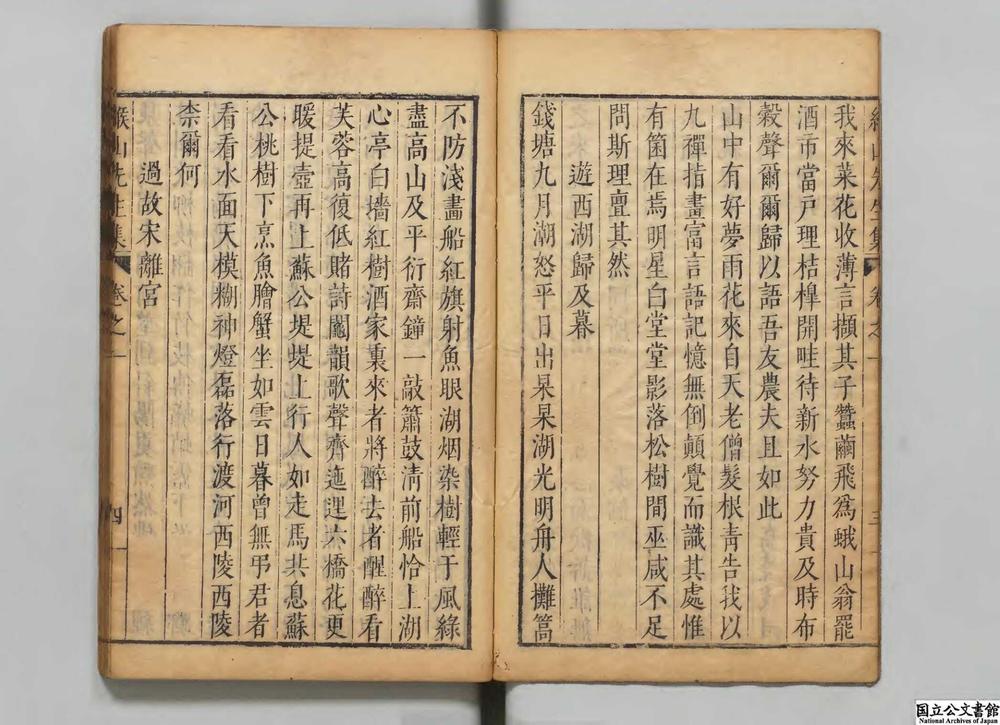 緱山先生集 卷之一 三
我來菜花收薄言擷其子蠶繭飛為蛾山翁罷
酒市當戶理桔槔開畦待新水努力貴及時布
穀聲爾爾歸以語吾友農夫且如此
山中有好夢雨花來自天老僧髮根青告我以
九禪指畫富言語記憶無倒顛覺而識其處惟
有箇在焉明星白堂堂影落松樹間巫咸不足
問斯理亶其然
遊西湖歸及暮
錢塘九月潮怒平日出杲杲湖光明舟人攤篙
不防淺畵船紅旗射魚眼湖烟染樹輕于風綠
盡高山及平衍齋鐘一敲簫鼓清前船恰上湖
心亭白墻紅樹酒家裏來者將醉去者醒醉看
芙蓉高復低賭詩鬮韻歌聲齊迤逦六橋花更
暖提壺再上蘇公堤堤上行人如走馬共息蘇
公桃樹下烹魚膾蟹坐如雲日暮曾無弔君者
看看水面天模糊神燈磊落行渡河西陵西陵
柰爾何
過故宋離宮
緱山先生集 卷之一 四
国立公文書館
National Archives of Japan